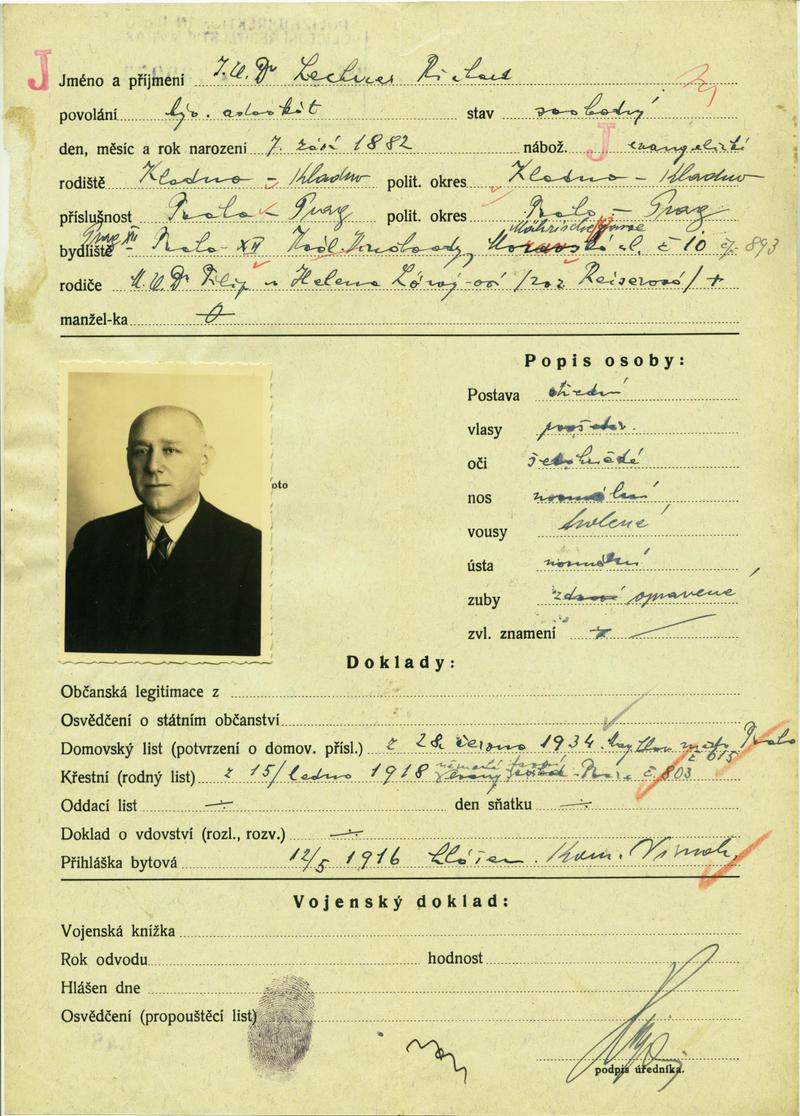 J
Jméno a příjmení J.U.Dr Lechner Richard
povolání býv. advokát stav svobodný
den, měsíc a rok narození 7. září 1882 nábož. J evangelické
rodiště Kladno - Kladno polit. okres Kladno - Kladno
příslušnost Praha - Prag polit. okres Praha - Prag
Prag XII
bydliště - Praha XII ul. č 10 čp. 893
rodiče M.U.Dr Filip a Helena roz. Reiserová / +
manžel-ka 0
Popis osoby:
Postava střední
vlasy
oči šedohnědé
nos normální
vousy holené
ústa normální
zuby zdravé opravené
zvl. znamení
oto
Doklady:
Občanská legitimace z
Osvědčení o státním občanství
Domovský list (potvrzení o domov. přísl.) z 28. června 1934 Praha
č 615
Křestní (rodný list) z 15/ledna 1918 č. 803
Oddací list ÷ den sňatku ÷
Doklad o vdovství (rozl., rozv.) ÷
Přihláška bytová 12/5 1916 Kom. Vinoh.
Vojenský doklad:
Vojenská knížka
Rok odvodu hodnost
Hlášen dne
Osvědčení (propouštěcí list)
podpis úředníka.